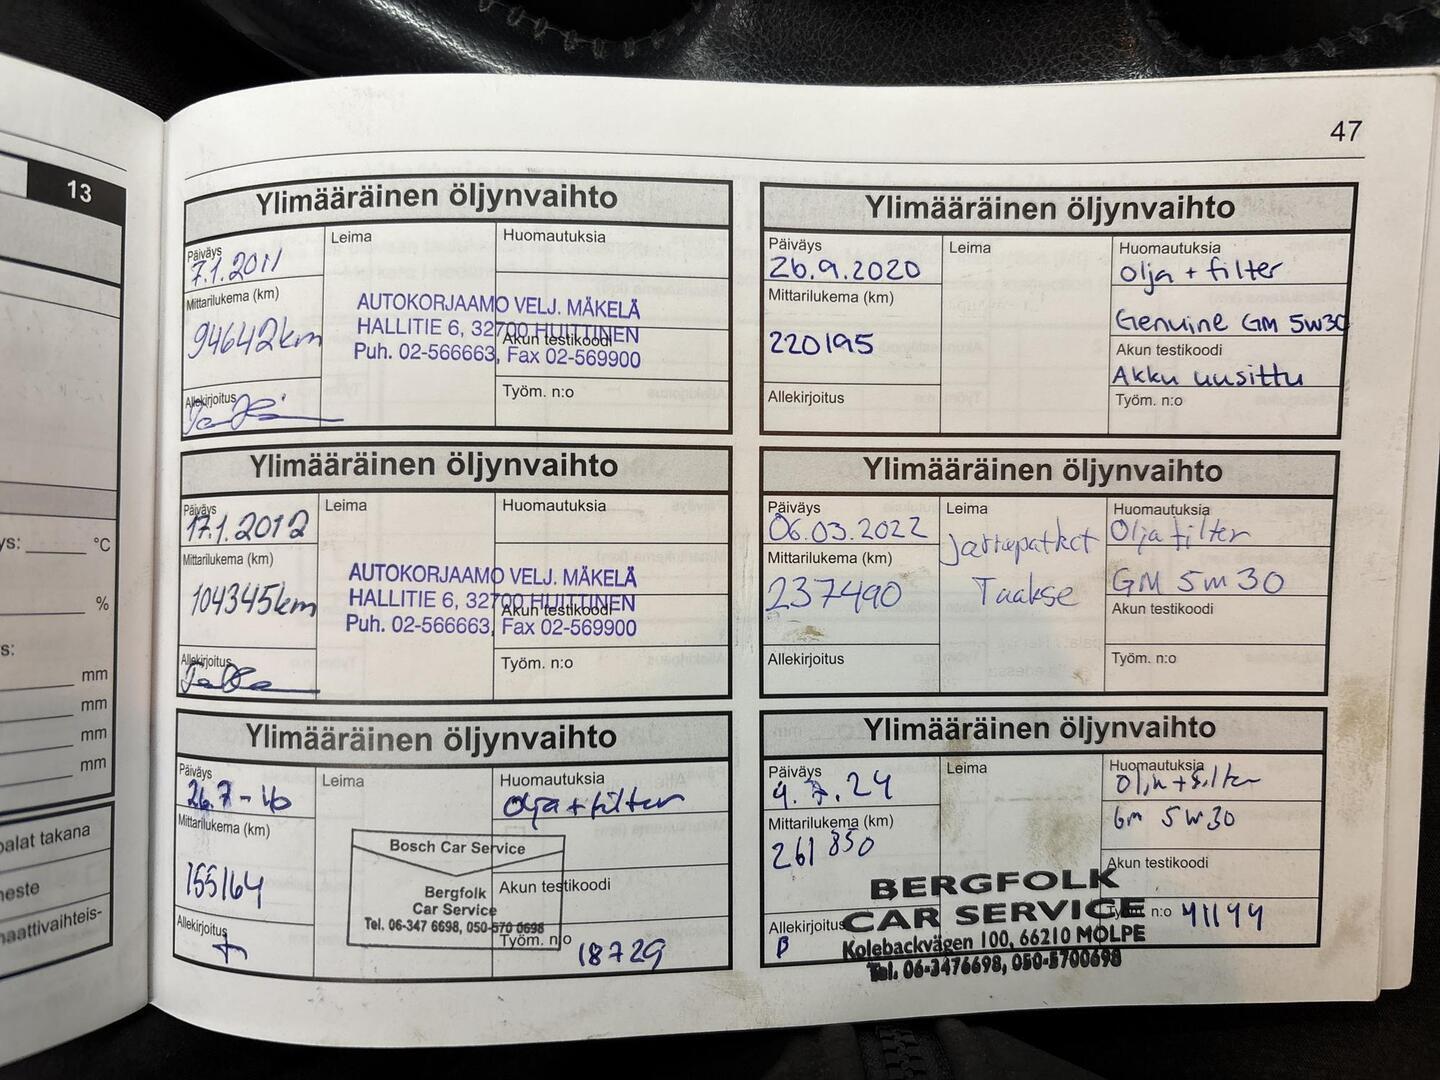 13
ys: ____ °C
%
s:
mm
mm
mm
mm
palat takana
neste
naattivaihteis-
47
Ylimääräinen öljynvaihto
Päiväys
7.1.2011
Mittarilukema (km)
94642km
Allekirjoitus
Leima
AUTOKORJAAMO VELJ. MÄKELÄ
HALLITIE 6, 32700 HUITTINEN
Puh. 02-566663, Fax 02-569900
Huomautuksia
Akun testikoodi
Työm. n:o
Ylimääräinen öljynvaihto
Päiväys
17.1.2012
Mittarilukema (km)
104345km
Allekirjoitus
Leima
AUTOKORJAAMO VELJ. MÄKELÄ
HALLITIE 6, 32700 HUITTINEN
Puh. 02-566663, Fax 02-569900
Huomautuksia
Akun testikoodi
Työm. n:o
Ylimääräinen öljynvaihto
Päiväys
26.7-16
Mittarilukema (km)
155164
Allekirjoitus
Leima
Bosch Car Service
Bergfolk
Car Service
Tel. 06-347 6698, 050-570 0698
Huomautuksia
olja + filter
Akun testikoodi
Työm. n:o 18729
Ylimääräinen öljynvaihto
Päiväys
26.9.2020
Mittarilukema (km)
220195
Allekirjoitus
Leima
Huomautuksia
Olja + filter
Genuine GM 5w30
Akun testikoodi
Akku uusittu
Työm. n:o
Ylimääräinen öljynvaihto
Päiväys
06.03.2022
Mittarilukema (km)
237490
Allekirjoitus
Leima
Taakse
Huomautuksia
Olja filter
GM 5w30
Akun testikoodi
Työm. n:o
Ylimääräinen öljynvaihto
Päiväys
4.7.24
Mittarilukema (km)
261 850
Allekirjoitus
B
Leima
BERGFOLK
CAR SERVICE
Kolebackvägen 100, 66210 MOLPE
Tel. 06-3476698, 050-5700698
Huomautuksia
Olja + filter
Gm 5w30
Akun testikoodi
Työm. n:o 41144